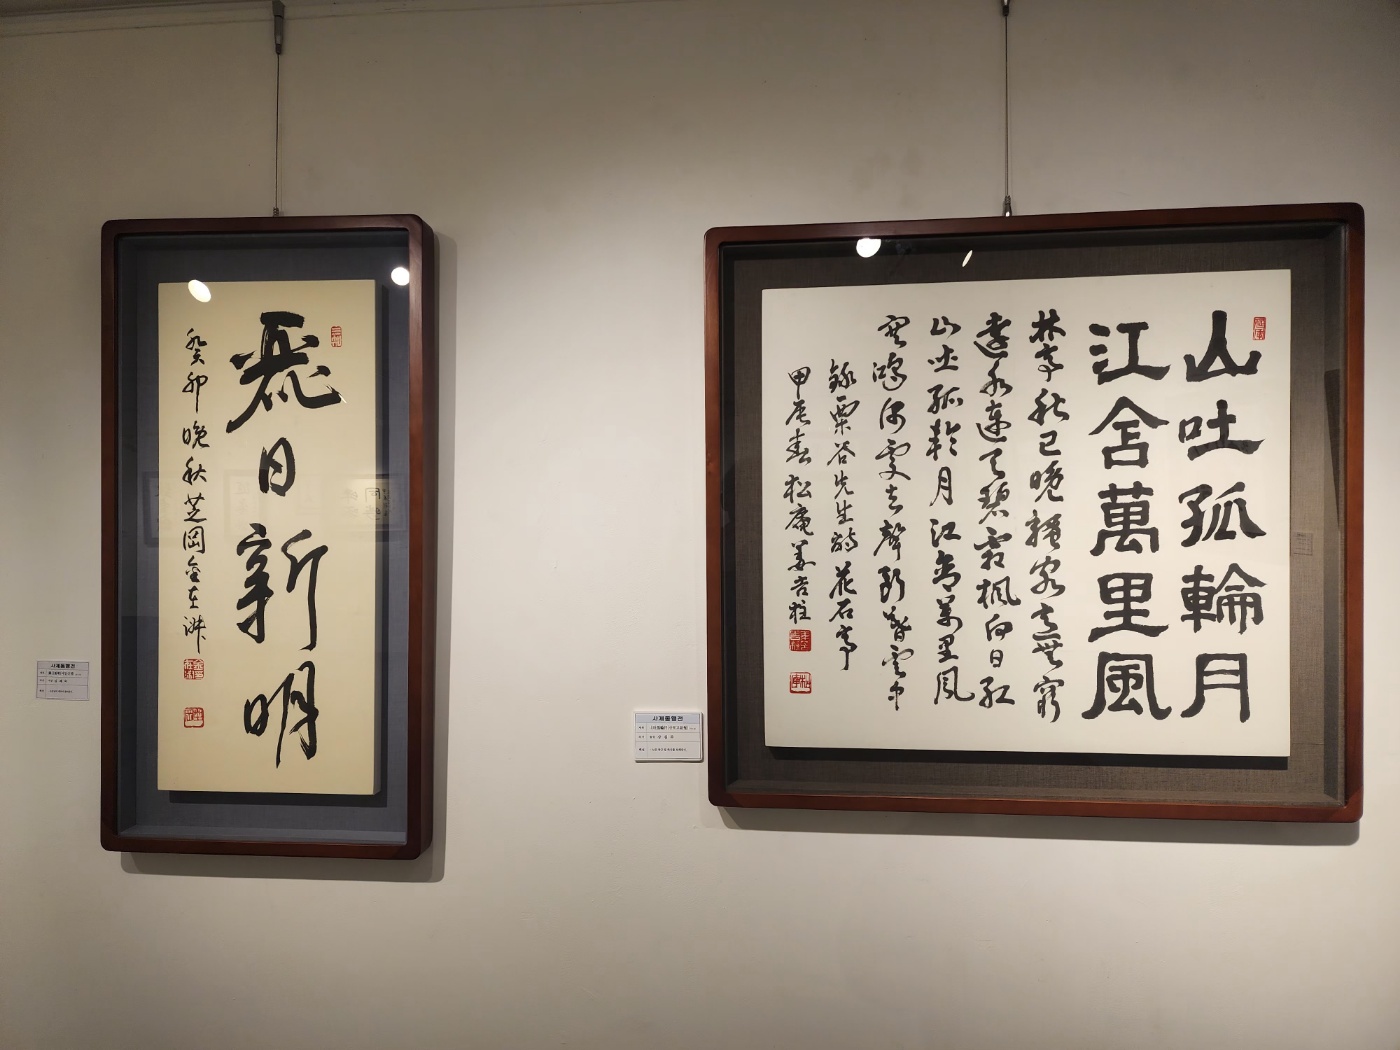 麗日新明
癸卯晚秋芝岡金在
山吐孤輪月
江含萬里風
林亭秋已晚騷客意無窮
遠水連天碧霜楓向日紅
山吐孤輪月江含萬里風
塞鴻何處去聲斷暮雲中
錄栗谷先生詩花石亭
甲辰春松庵姜吉柱
사제동행전
사제동행전